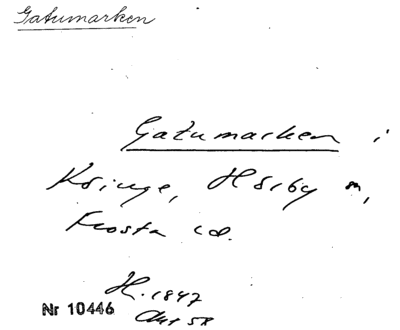 Gatumarken
Gatumarken i
Kringe, Hörby sn,
Frosta hd.
H. 1847
Akt 58
Nr 10446